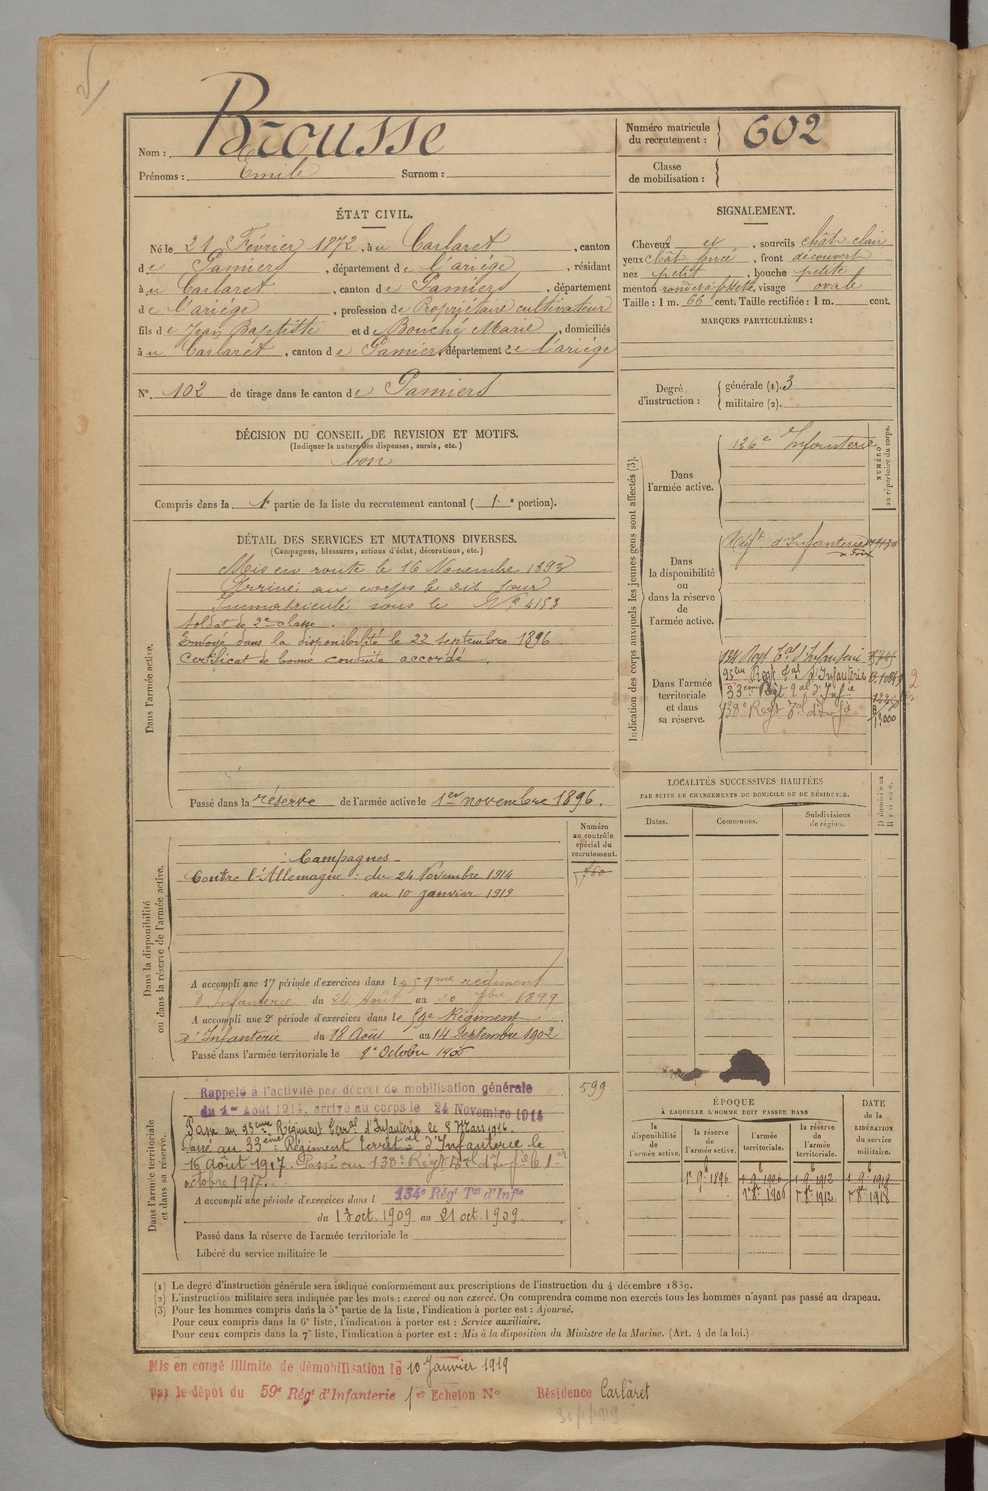 Nom : Brousse
Prénoms : Emile Surnom :
Numéro matricule du recrutement : 602
Classe de mobilisation :
ÉTAT CIVIL.
Né le 21 Février 1872, à u Carlaret, canton
de Pamiers, département de l'ariége, résidant
à u Carlaret, canton de Pamiers, département
de l'ariége, profession de Propriétaire cultivateur
fils de Jean Baptiste et de Bouché Marie, domiciliés
à u Carlaret, canton de Pamiers département de l'ariége
N°. 102 de tirage dans le canton de Pamiers
SIGNALEMENT.
Cheveux et, sourcils chât-clair
yeux chât foncé, front découvert
nez petit, bouche petite
menton rond à fossette, visage ovale
Taille : 1 m. 66 cent. Taille rectifiée : 1 m. cent.
MARQUES PARTICULIÈRES :
Degré d'instruction :
générale (1). 3
militaire (2).
DÉCISION DU CONSEIL DE REVISION ET MOTIFS.
(Indiquer la nature des dispenses, sursis, etc.)
bon
Compris dans la 1e partie de la liste du recrutement cantonal ( 1e portion).
DÉTAIL DES SERVICES ET MUTATIONS DIVERSES.
(Campagnes, blessures, actions d'éclat, décorations, etc.)
Dans l'armée active.
Mis en route le 16 Novembre 1893
Arrivé au corps le dit jour
Immatriculé sous le N° 4153
Soldat de 2me classe.
Envoyé dans la disponibilité le 22 septembre 1896.
Certificat de bonne conduite accordé.
Passé dans la réserve de l'armée active le 1er novembre 1896.
Indication des corps auxquels les jeunes gens sont affectés (3).
NUMÉRO au répertoire du corps.
Dans l'armée active.
126e Infanterie
Dans la disponibilité ou dans la réserve de l'armée active.
Régt. d'Infanterie
de Foix
Dans l'armée territoriale et dans sa réserve.
134 Regt Tal d'Infanterie
95eme Regt Tal d'Infanterie
33eme Régt Tal d'Infie
138e Regt Tal d'Infie
13000
LOCALITÉS SUCCESSIVES HABITÉES
PAR SUITE DE CHANGEMENTS DE DOMICILE OU DE RÉSIDENCE.
Dates. Communes. Subdivisions de région. D domicile ou R résidence.
Dans la disponibilité ou dans la réserve de l'armée active.
Numéro au contrôle spécial du recrutement.
760
Campagnes
Contre l'Allemagne : du 24 Novembre 1914
au 10 janvier 1919
A accompli une 1re période d'exercices dans le 59me régiment
d'Infanterie du 24 août au 20 7bre 1899
A accompli une 2e période d'exercices dans le 59e Régiment
d'Infanterie du 18 Août au 14 Septembre 1902
Passé dans l'armée territoriale le 1er Octobre 1906
Dans l'armée territoriale et dans sa réserve.
599
Rappelé à l'activité par décret de mobilisation générale
du 1er Août 1914, arrivé au corps le 24 Novembre 1914
Passé au 95eme Régiment Terral d'Infanterie le 8 Mars 1916.
Passé au 33eme Régiment territal d'Infanterie le
16 août 1917. Passé au 138e Régt Tal d'Infie le 1er
octobre 1917.
A accompli une période d'exercices dans l 134e Régt Tal d'Infie
du 13 oct. 1909 au 21 oct. 1909.
Passé dans la réserve de l'armée territoriale le
Libéré du service militaire le
ÉPOQUE
À LAQUELLE L'HOMME DOIT PASSER DANS
la disponibilité de l'armée active. la réserve de l'armée active. l'armée territoriale. la réserve de l'armée territoriale.
DATE de la LIBÉRATION du service militaire.
1er 9bre 1896 1 9 1906 1 9 1912 1 9 1918
1er 8bre 1906 1 8 1912 1 8 1918
(1) Le degré d'instruction générale sera indiqué conformément aux prescriptions de l'instruction du 4 décembre 1889.
(2) L'instruction militaire sera indiquée par les mots : exercé ou non exercé. On comprendra comme non exercés tous les hommes n'ayant pas passé au drapeau.
(3) Pour les hommes compris dans la 5e partie de la liste, l'indication à porter est : Ajourné.
Pour ceux compris dans la 6e liste, l'indication à porter est : Service auxiliaire.
Pour ceux compris dans la 7e liste, l'indication à porter est : Mis à la disposition du Ministre de la Marine. (Art. 4 de la loi.)
Mis en congé illimité de démobilisation le 10 Janvier 1919
par le dépot du 59e Régt d'Infanterie 1er Echelon N° Résidence Carlaret